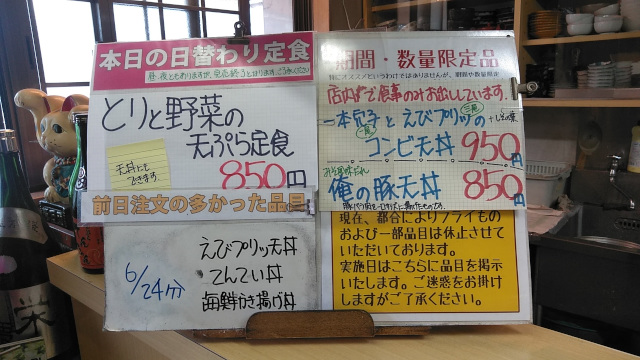 本日の日替わり定食
昼・夜ともありますが、完売終了となります。ご了承ください
とりと野菜の
天ぷら定食
850円
天丼にも
できます
前日注文の多かった品目
6/24分
えびプリッツ天丼
てんてい丼
海鮮かき揚げ丼
期間・数量限定品
特にオススメというわけではありませんが、期間や数量限定
店内で食事のみお出ししています。
一本穴子とえびプリッツの
一尾
三尾
コンビ天丼 950円
俺の豚天丼 850円
現在、都合によりフライもの
および一部品目は休止させて
いただいております。
実施日はこちらに品目を掲示
いたします。ご迷惑をお掛け
しますがご了承ください。